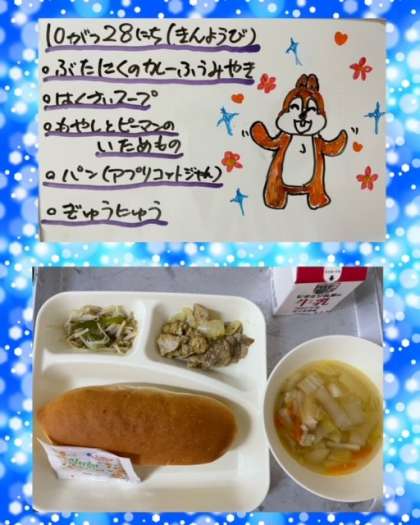 10がつ28にち(きんようび)
○ぶたにくのカレーふうみやき
○はくさいスープ
○もやしとピーマンの
いためもの
○パン(アプリコットジャム)
○ぎゅうにゅう
牛乳